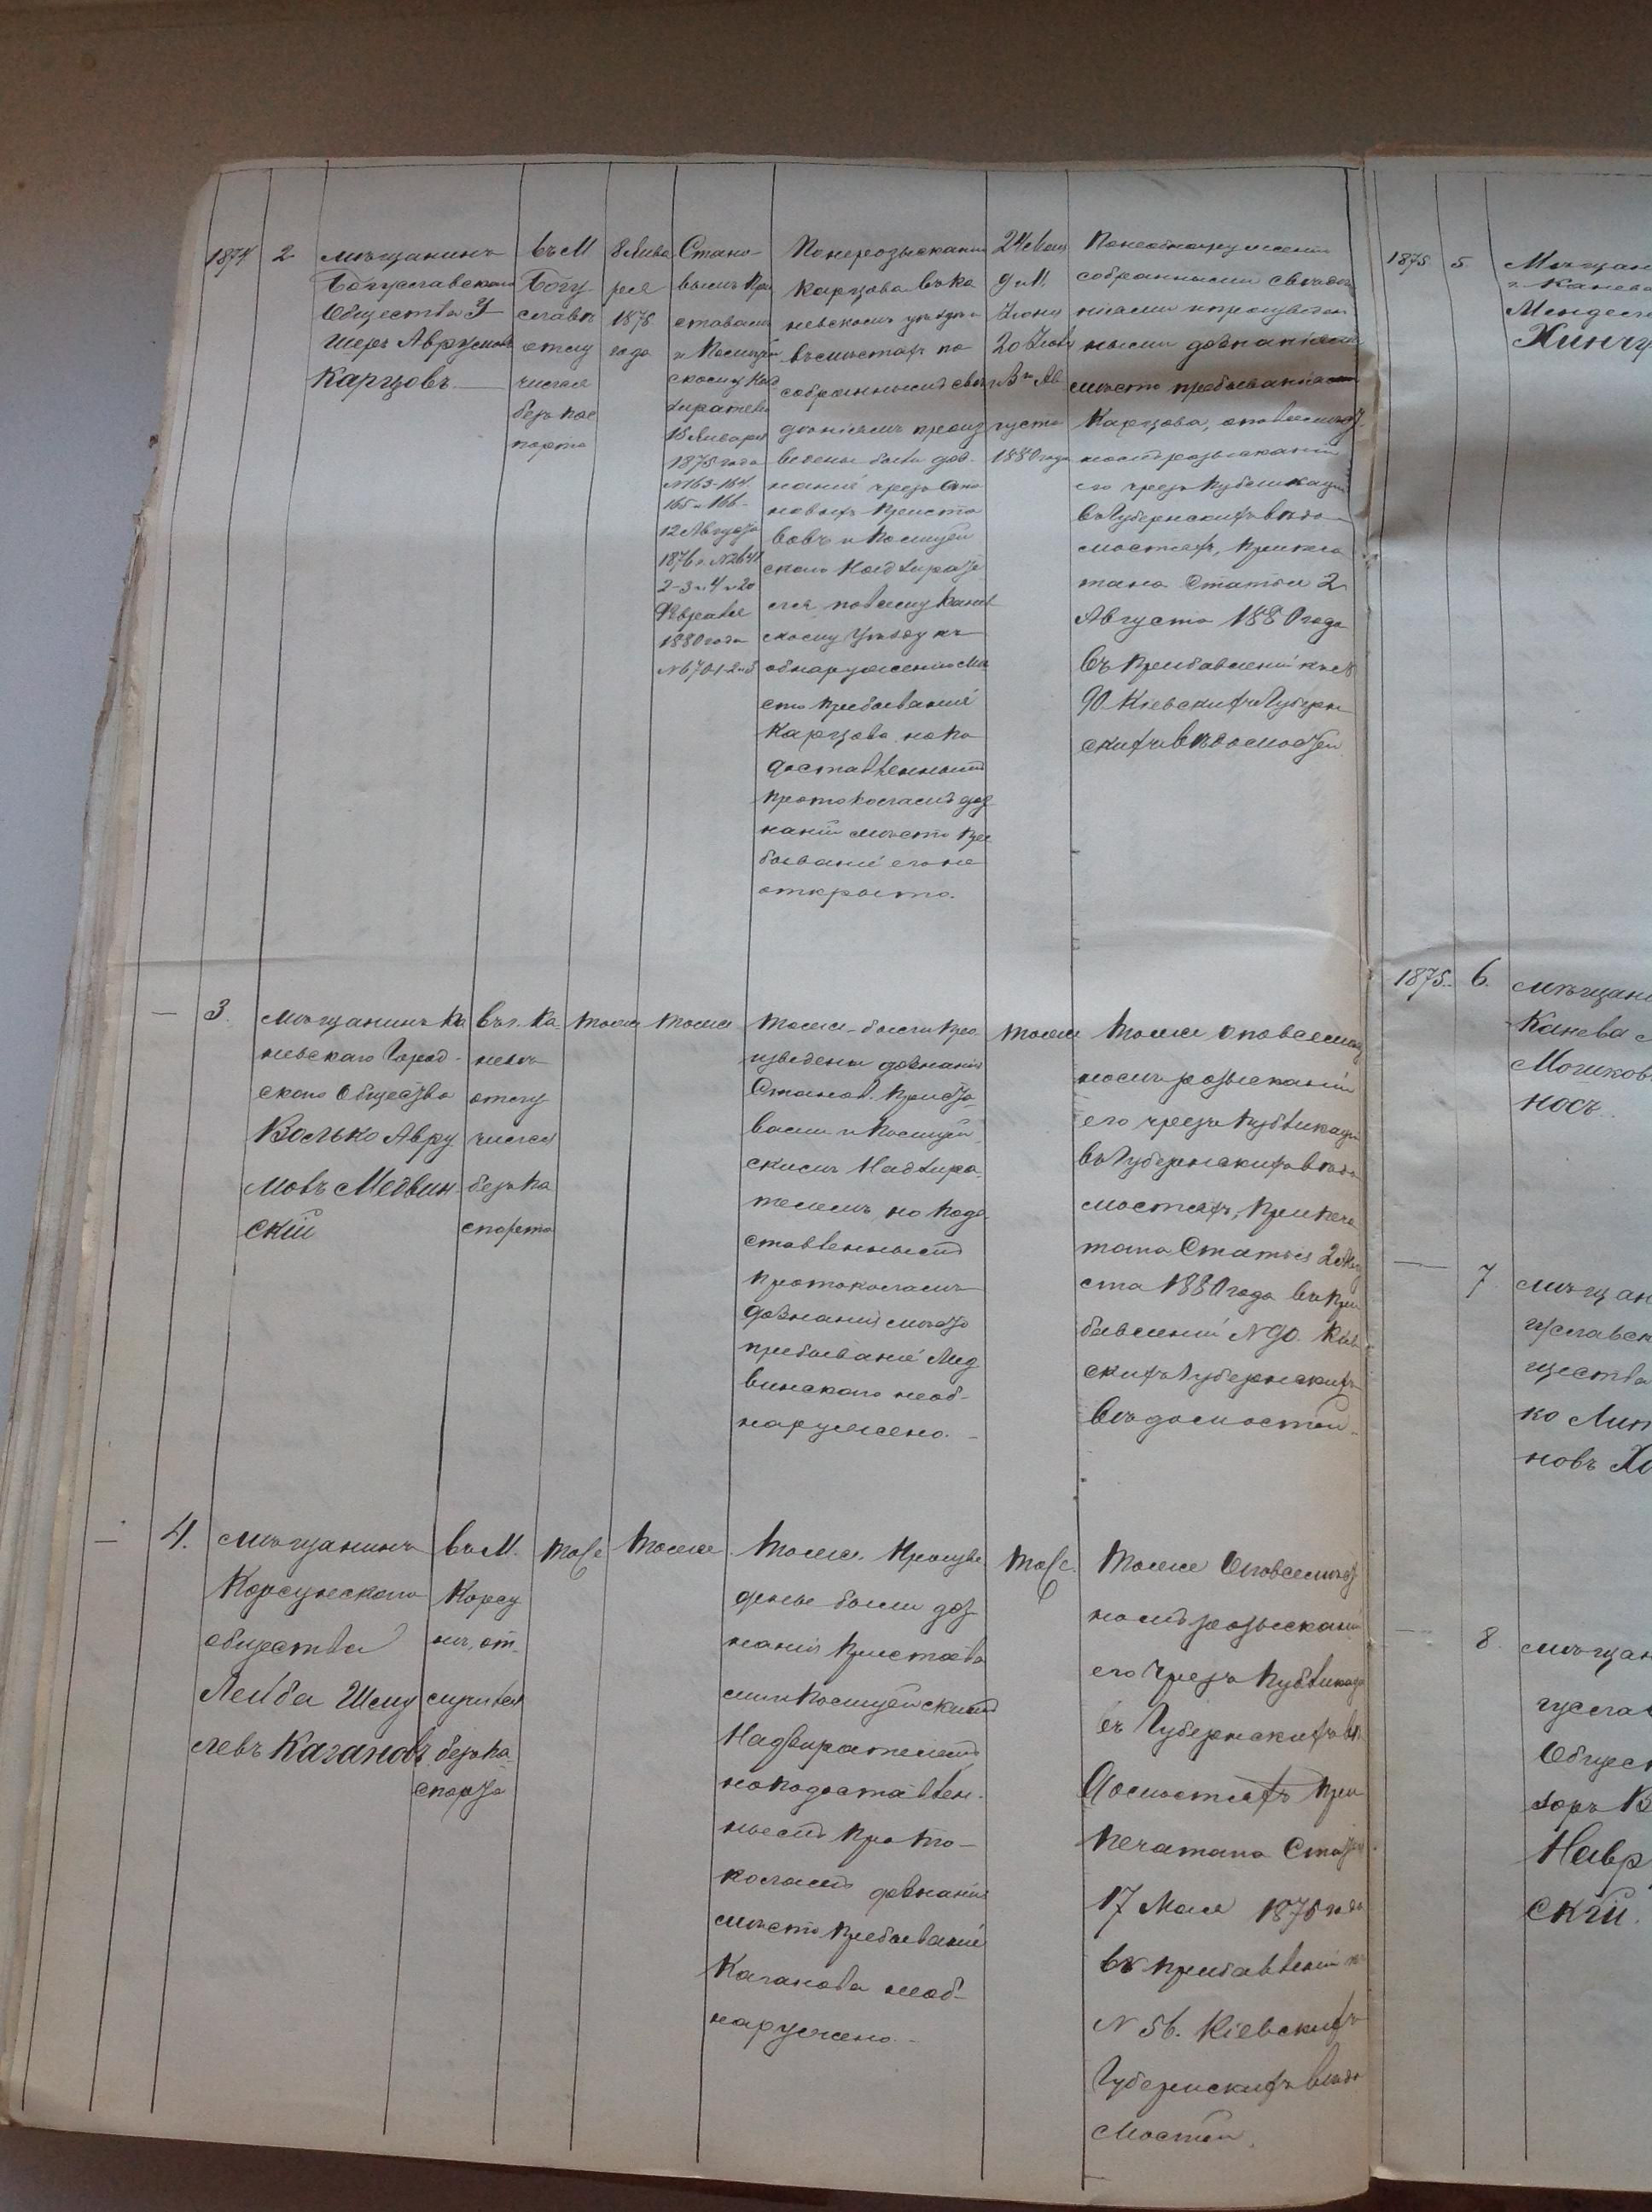 1874
2
мѣщанинъ
Богуславскаго
Общества У-
шеръ Аврумовъ
Карцовъ.
въ М
Богу-
славѣ
отлу
чился
безъ пас
порта
8 Янва
ря
1875
года
Стано-
вымъ При
ставамъ
и Полицей
скому Над
зирателю
15 Января
1875 года
№ 163-164
165 и 166-
12 Августа
1876 г. №
2-3 и 4 и 20
Февраля
1880 года
№ 6701-2 и 3
По нерозысканіи
Карцова въ Ка
невскомъ уѣздѣ и
въ мѣстахъ по
собраннымъ свѣ
дѣніямъ произ
ведены были доз-
нанія чрезъ Ста
новыхъ Приста
вовъ и Полицей
скаго Надзирате
ля по всему Канев
скому Уѣзду къ
обнаруженію Мѣ
сто пребыванія
Карцова, но по
доставленнымъ
протоколамъ доз
наній мѣсто пре
быванія его не
открыто.
24 Мая
9 и 11
Іюня
20 Іюля
и 8 Ав
густа
1880 года
По необнаруженіи
собранными свѣдѣ
ніями и произведен
ными дознаніями
мѣсто пребыванія
Карцова, о повсемѣст
номъ розысканіи
его чрезъ Публикацію
въ Губернскихъ вѣдо-
мостяхъ, припеча
тана Статья 2
Августа 1880 года
въ Прибавленіи къ №
90 Кіевскихъ Губерн-
скихъ Вѣдомостей.
—
3.
Мѣщанинъ Ка
невскаго Город-
скаго Общества
Волько Авру
мовъ Медвин
скій
въ г. Ка-
невѣ
отлу
чился
безъ па
спорта
тоже
тоже
тоже - были про
изведены дознанія
Станов. Приста-
вами и Полицей
скимъ Надзира-
телемъ, но подо-
ставленнымъ
протоколамъ
дознанія мѣсто
пребываніе Мед
винскаго необ-
наружено. -
тоже
тоже о повсемѣст
номъ розысканіи
его чрезъ публикацію
въ Губернскихъ вѣдо
мостяхъ, припеча
тана Статья 2 Авгу
ста 1880 года въ при
бавленіи № 90. Кіев
скихъ Губернскихъ
Вѣдомостей.
—
4.
мѣщанинъ
Корсунскаго
общества
Лейба Шму
левъ Кагановъ
въ М.
Корсу
нѣ, от-
лучился
безъ па-
спорта
тоже
тоже
тоже. Произве
дены были доз
нанія Пристава
ми и Полицейскимъ
Надзирателемъ
но по доставлен-
нымъ Прото-
коламъ дознанія
мѣсто пребываніе
Каганова необ-
наружено. -
тоже.
тоже о повсемѣст
номъ розысканіи
его чрезъ Публикацію
въ Губернскихъ вѣ
домостяхъ При
печатана Статья
17 Мая 1875 года
въ прибавленіи къ
№ 56. Кіевскихъ
Губернскихъ вѣдо
мостей.
1875
5.
Мѣщан
г. Канева
Мендел
Хинчу
1875.
6.
мѣщани
Канева
Мошков
носъ.
—
7
мѣщан
гуславск
щества
ко Лип
новъ Хо
—
8.
мѣщан
гуслав
Общес
зоръ В
Навр
скій.